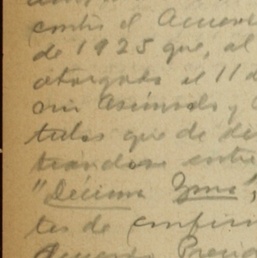 contra el Acuerdo
de 1925 que, al
otorgado el 11 d
sin Asímodo y
tulos que de di
trandose entre
"Décima Zona",
tes de confirm
Acuerdo Presid